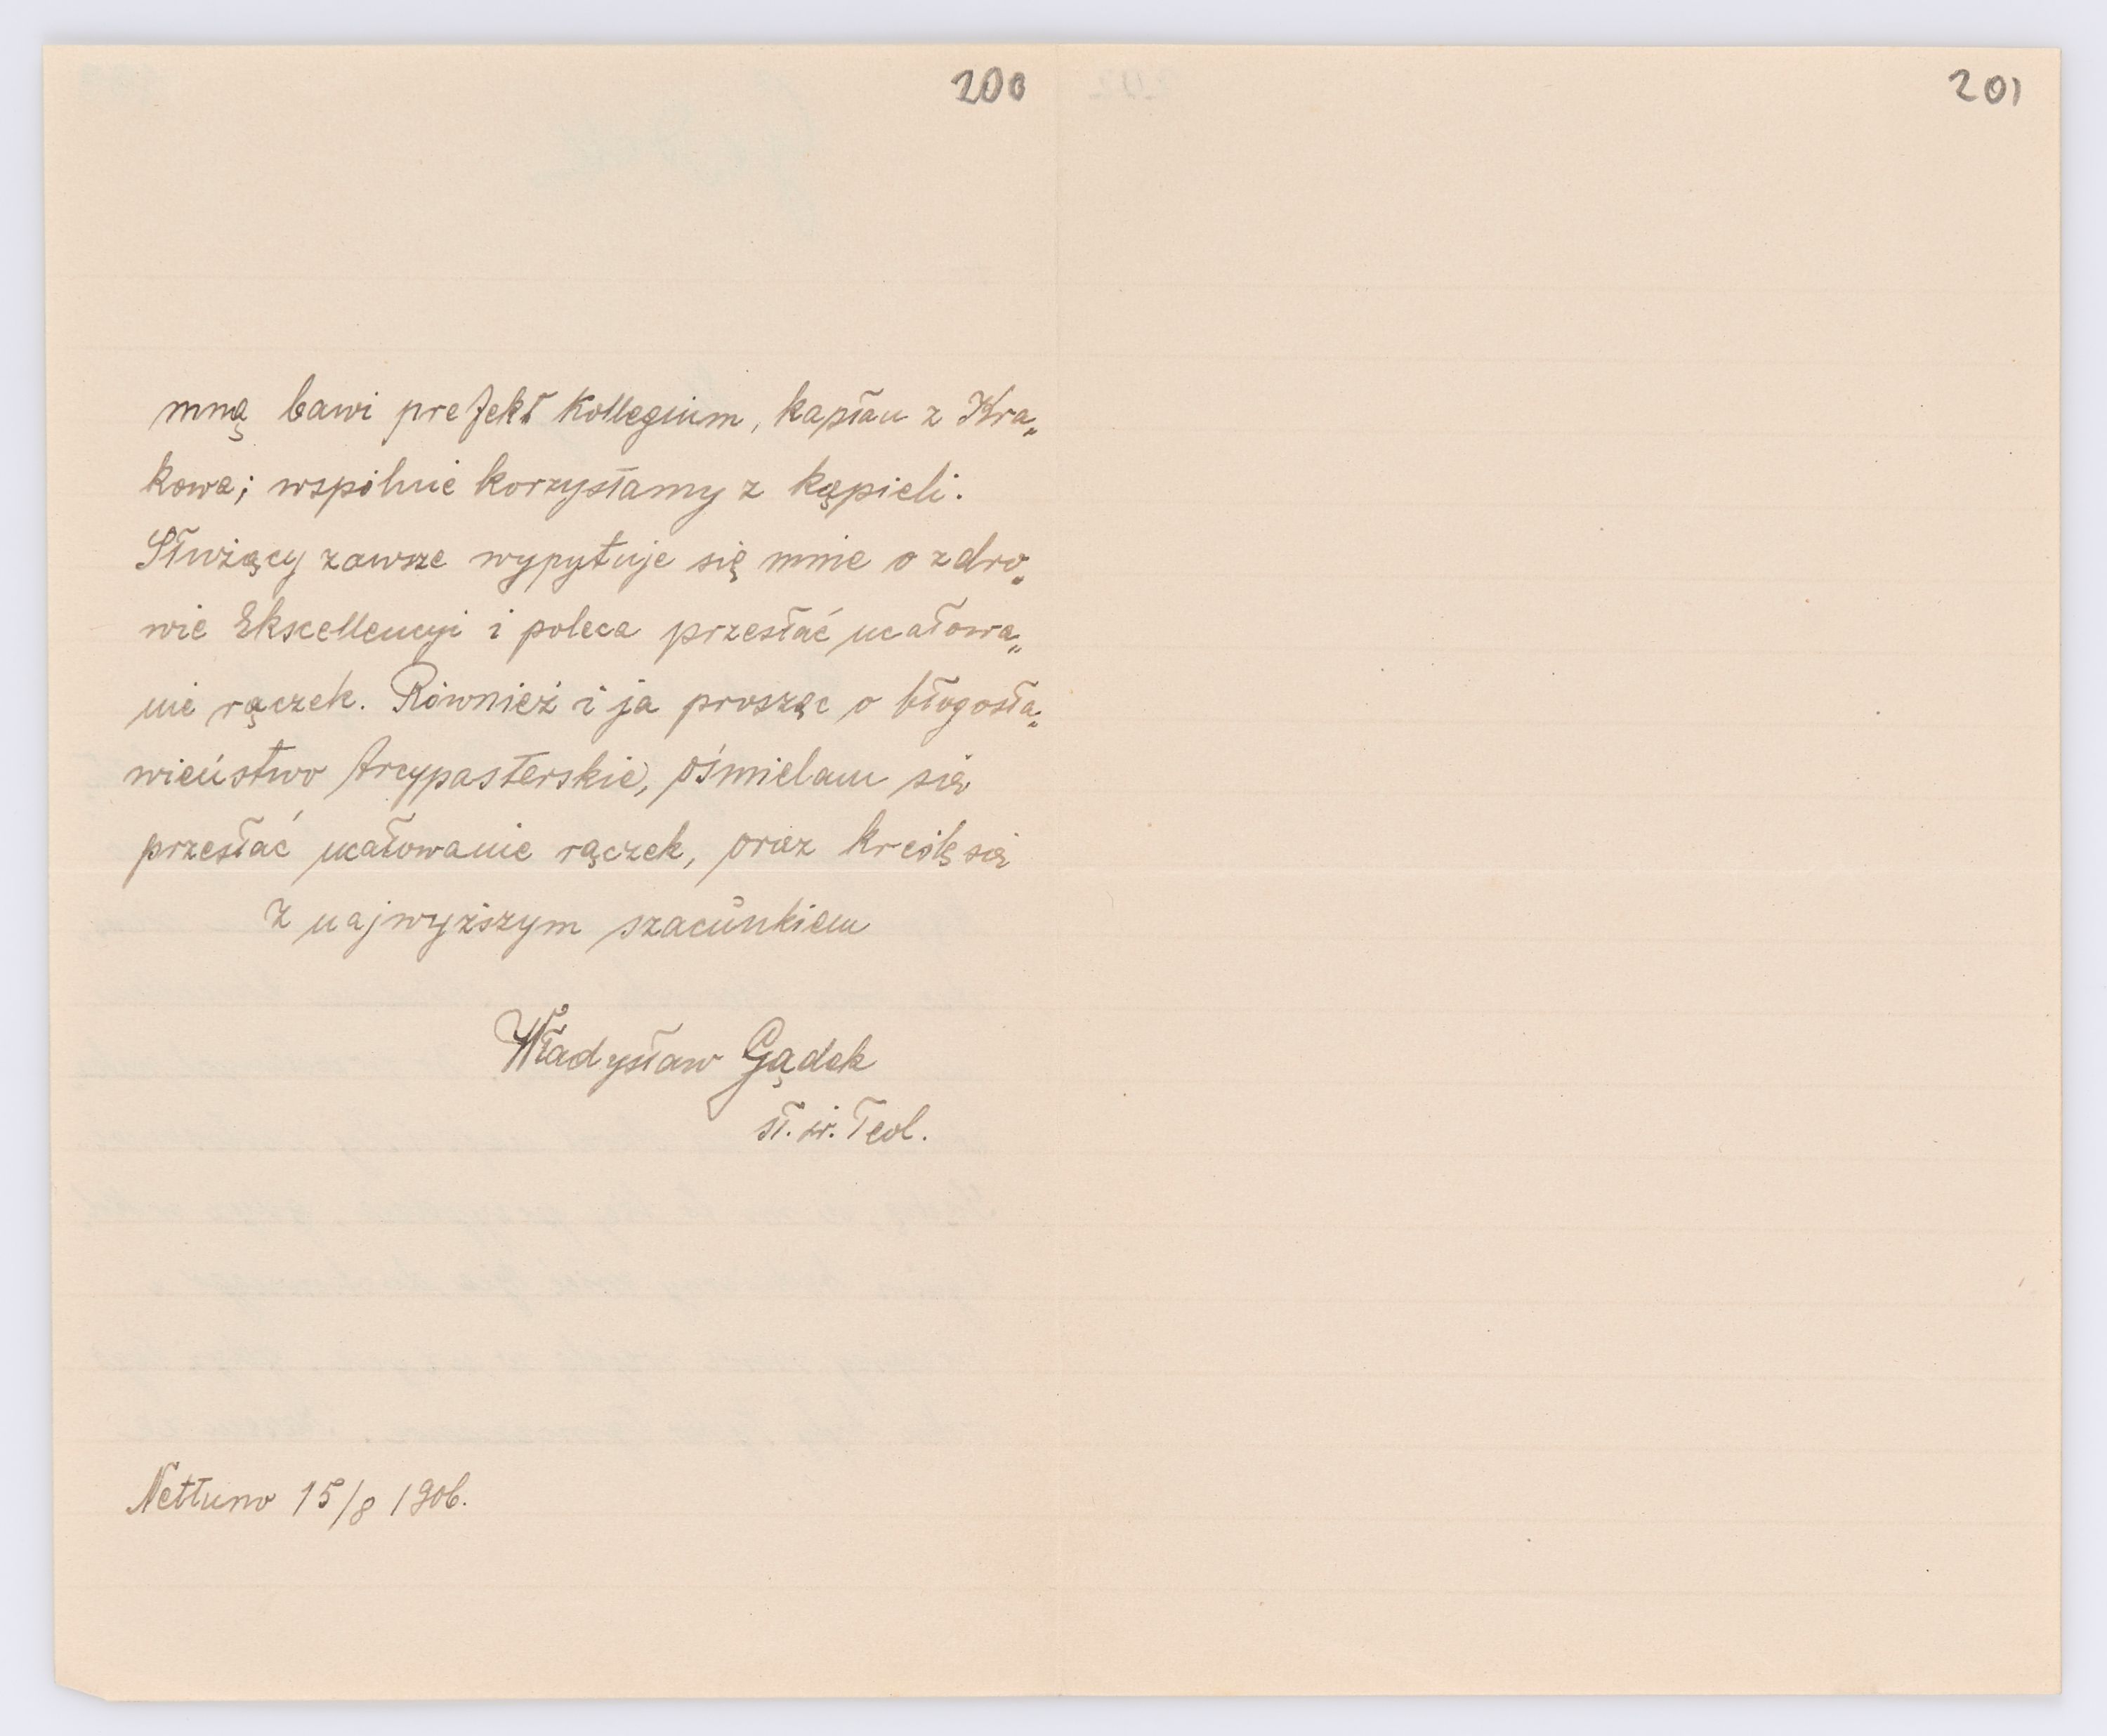 200
201
mną bawi prefekt Kollegium, kapłan z Kra„
kowa; wspólnie korzystamy z kąpieli.
Służący zawsze wypytuje się mnie o zdro„
wie Ekscellencyi i poleca przesłać ucałowa„
nie rączek. Również i ja prosząc o błogosła„
wieństwo Arcypasterskie, ośmielam się
przesłać ucałowanie rączek, oraz kreślę się
Z najwyższym szacunkiem
Władysław Gądek
sł. św. Teol.
Nettuno 15/8 1906.